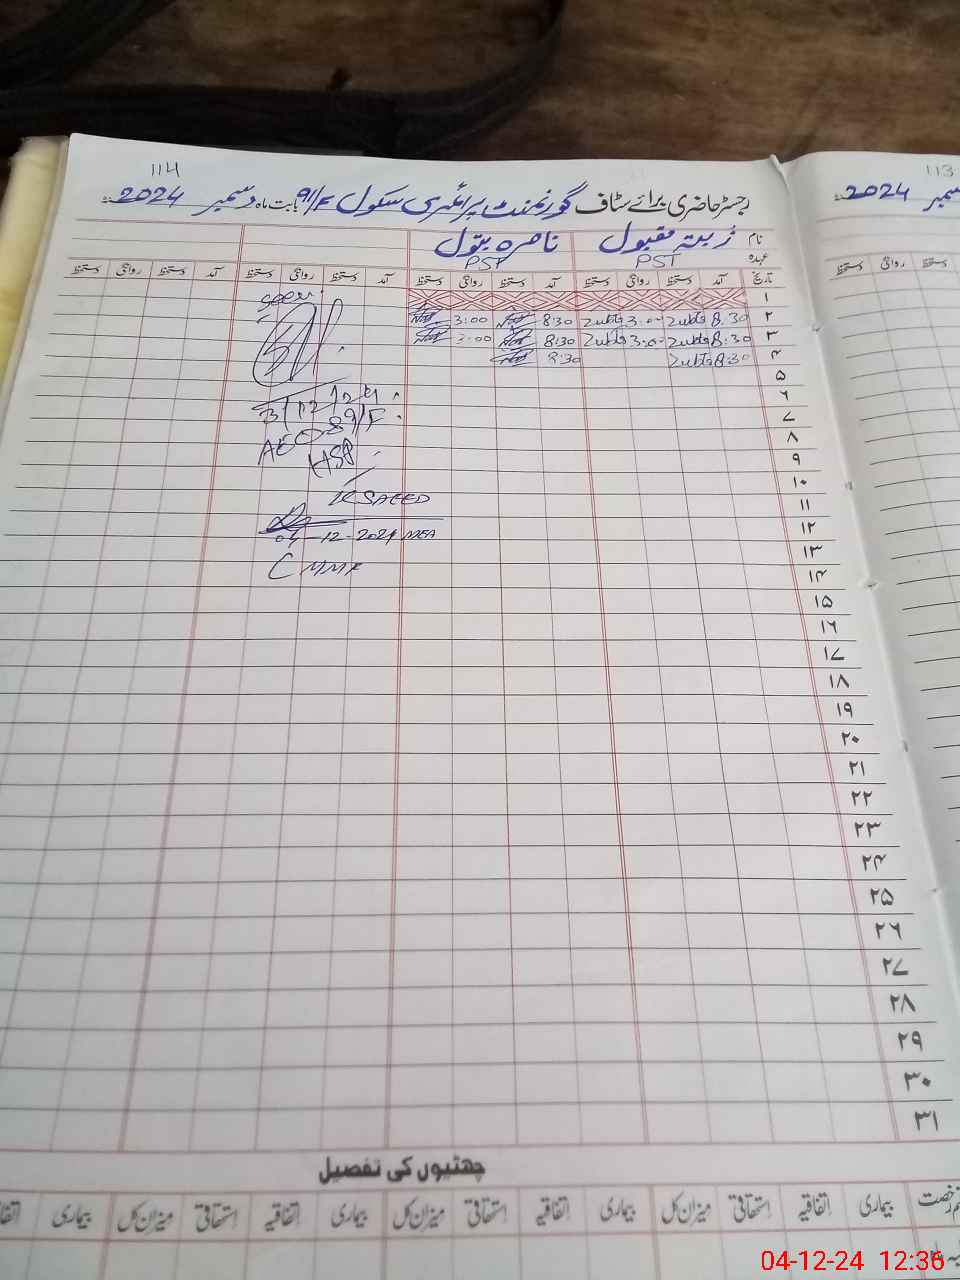 114
113
رجسٹر حاضری برائے سٹاف گورنمنٹ پرائمری سکول 91/F بابت ماہ دسمبر 2024
دسمبر 2024
نام زبتہ مقبول ناصرہ بتول
عہدہ PST PST
تاریخ آمد دستخط روانگی دستخط آمد دستخط روانگی دستخط آمد دستخط روانگی دستخط آمد دستخط روانگی دستخط
دستخط روانگی دستخط
۱
۲ 8:30 3:00 8:30 3:00
۳ 8:30 3:00 8:30 3:00
۴ 8:30 8:30
۵
۶
۷
۸
۹
۱۰
۱۱
۱۲
۱۳
۱۴
۱۵
۱۶
۱۷
۱۸
۱۹
۲۰
۲۱
۲۲
۲۳
۲۴
۲۵
۲۶
۲۷
۲۸
۲۹
۳۰
۳۱
seen
3/12/24
AEO 89/F
HSP
SAEED
04-12-2024 MEA
چھٹیوں کی تفصیل
رخصت بیماری اتفاقیہ استحقاقی میزان کل بیماری اتفاقیہ استحقاقی میزان کل بیماری اتفاقیہ استحقاقی میزان کل بیماری
04-12-24 12:36